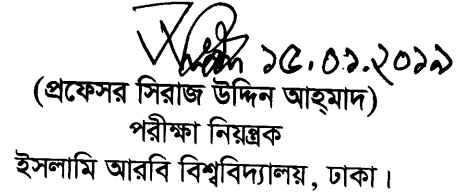 ১৫.০১.২০১৯
(প্রফেসর সিরাজ উদ্দিন আহ্‌মাদ)
পরীক্ষা নিয়ন্ত্রক
ইসলামি আরবি বিশ্ববিদ্যালয়, ঢাকা।